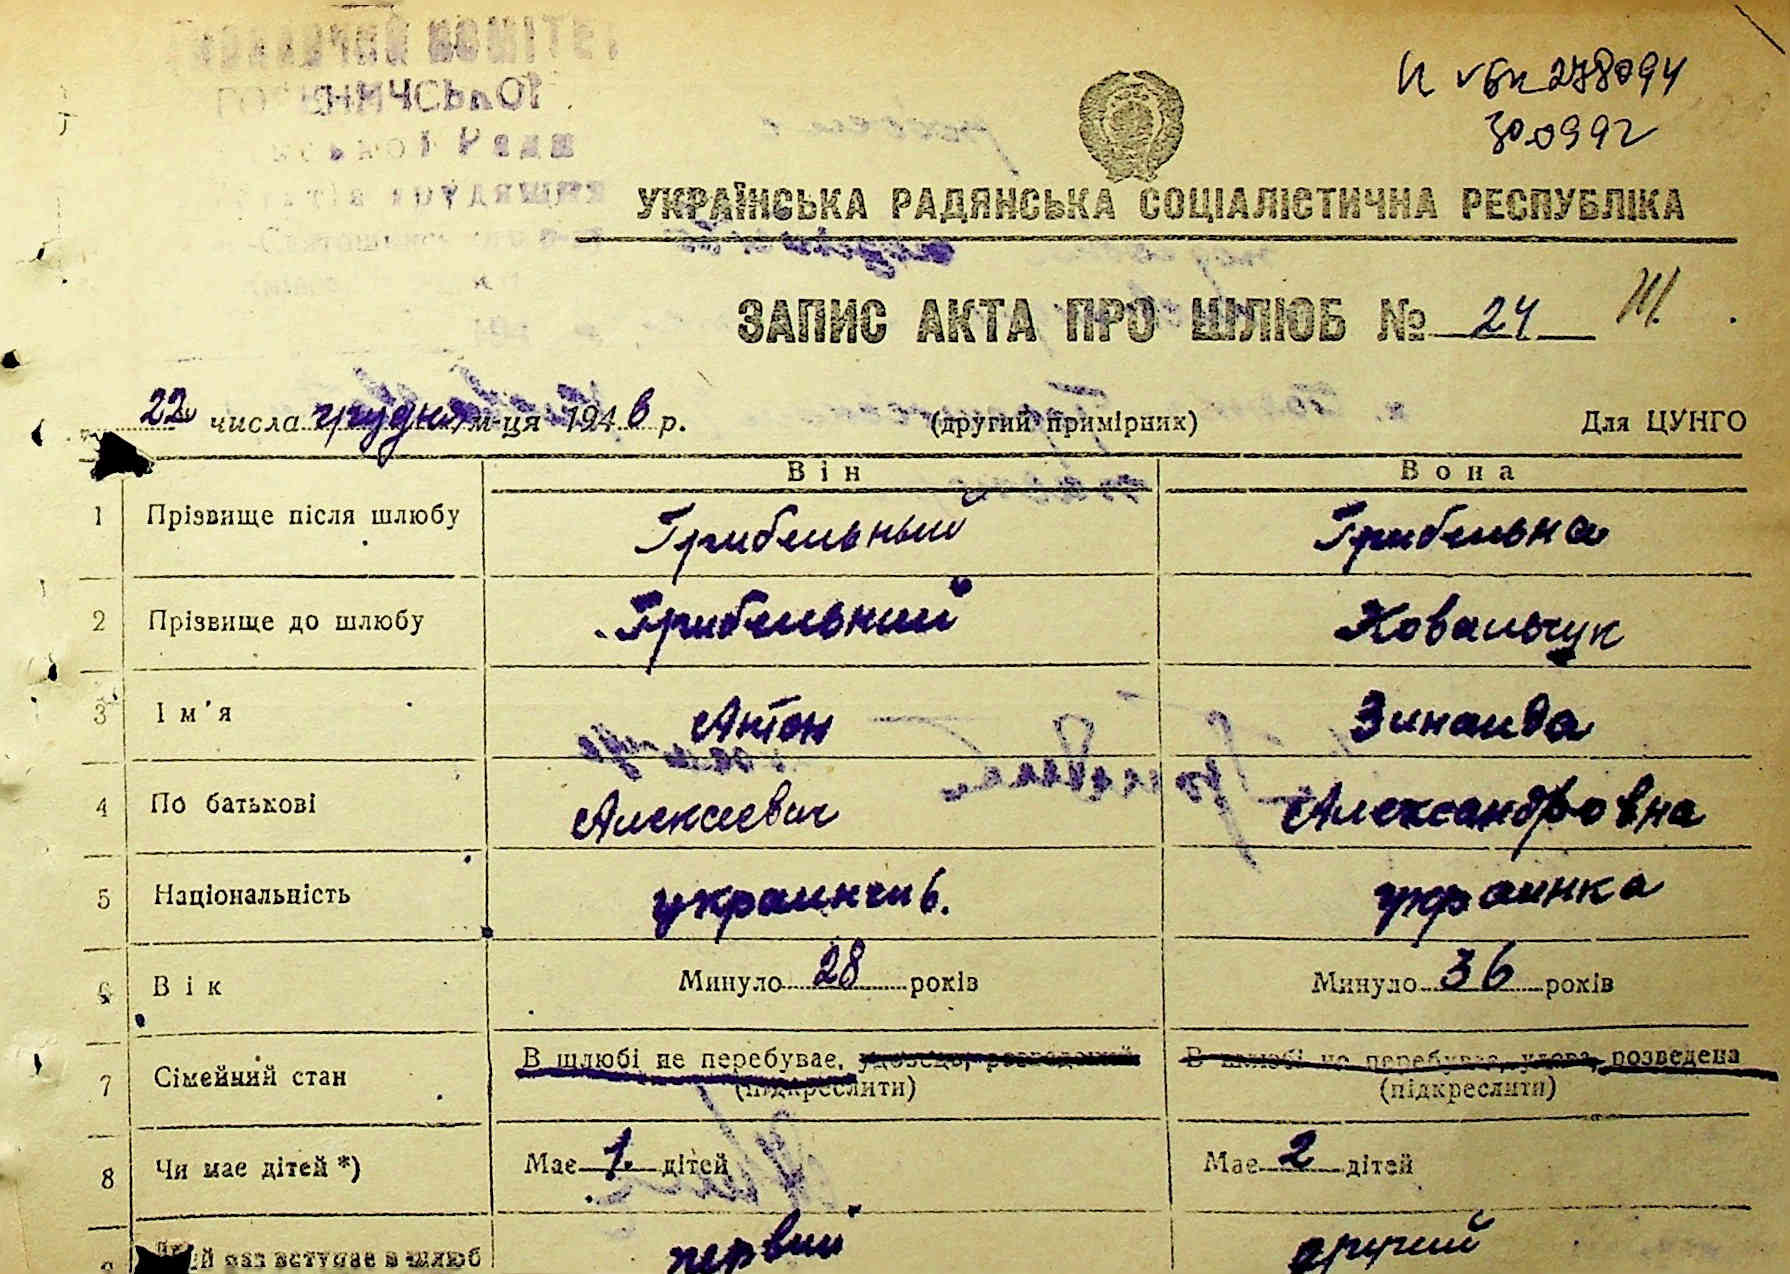 И VБК 278094
300992
УКРАЇНСЬКА РАДЯНСЬКА СОЦІАЛІСТИЧНА РЕСПУБЛІКА
ЗАПИС АКТА ПРО ШЛЮБ № 24
22 числа грудня м-ця 1946 р. (другий примірник) Для ЦУНГО
Він Вона
1 Прізвище після шлюбу Грибельный Грибельна
2 Прізвище до шлюбу Грибельний Ковальчук
3 Ім'я Антон Зинаида
4 По батькові Алексеевич Александровна
5 Національність украинець украинка
6 Вік Минуло 28 років Минуло 36 років
7 Сімейний стан В шлюбі не перебуває, удовець, розведений В шлюбі не перебуває, удова, розведена
(підкреслити) (підкреслити)
8 Чи має дітей *) Має 1. дітей Має 2 дітей
раз вступає в шлюб первий другий